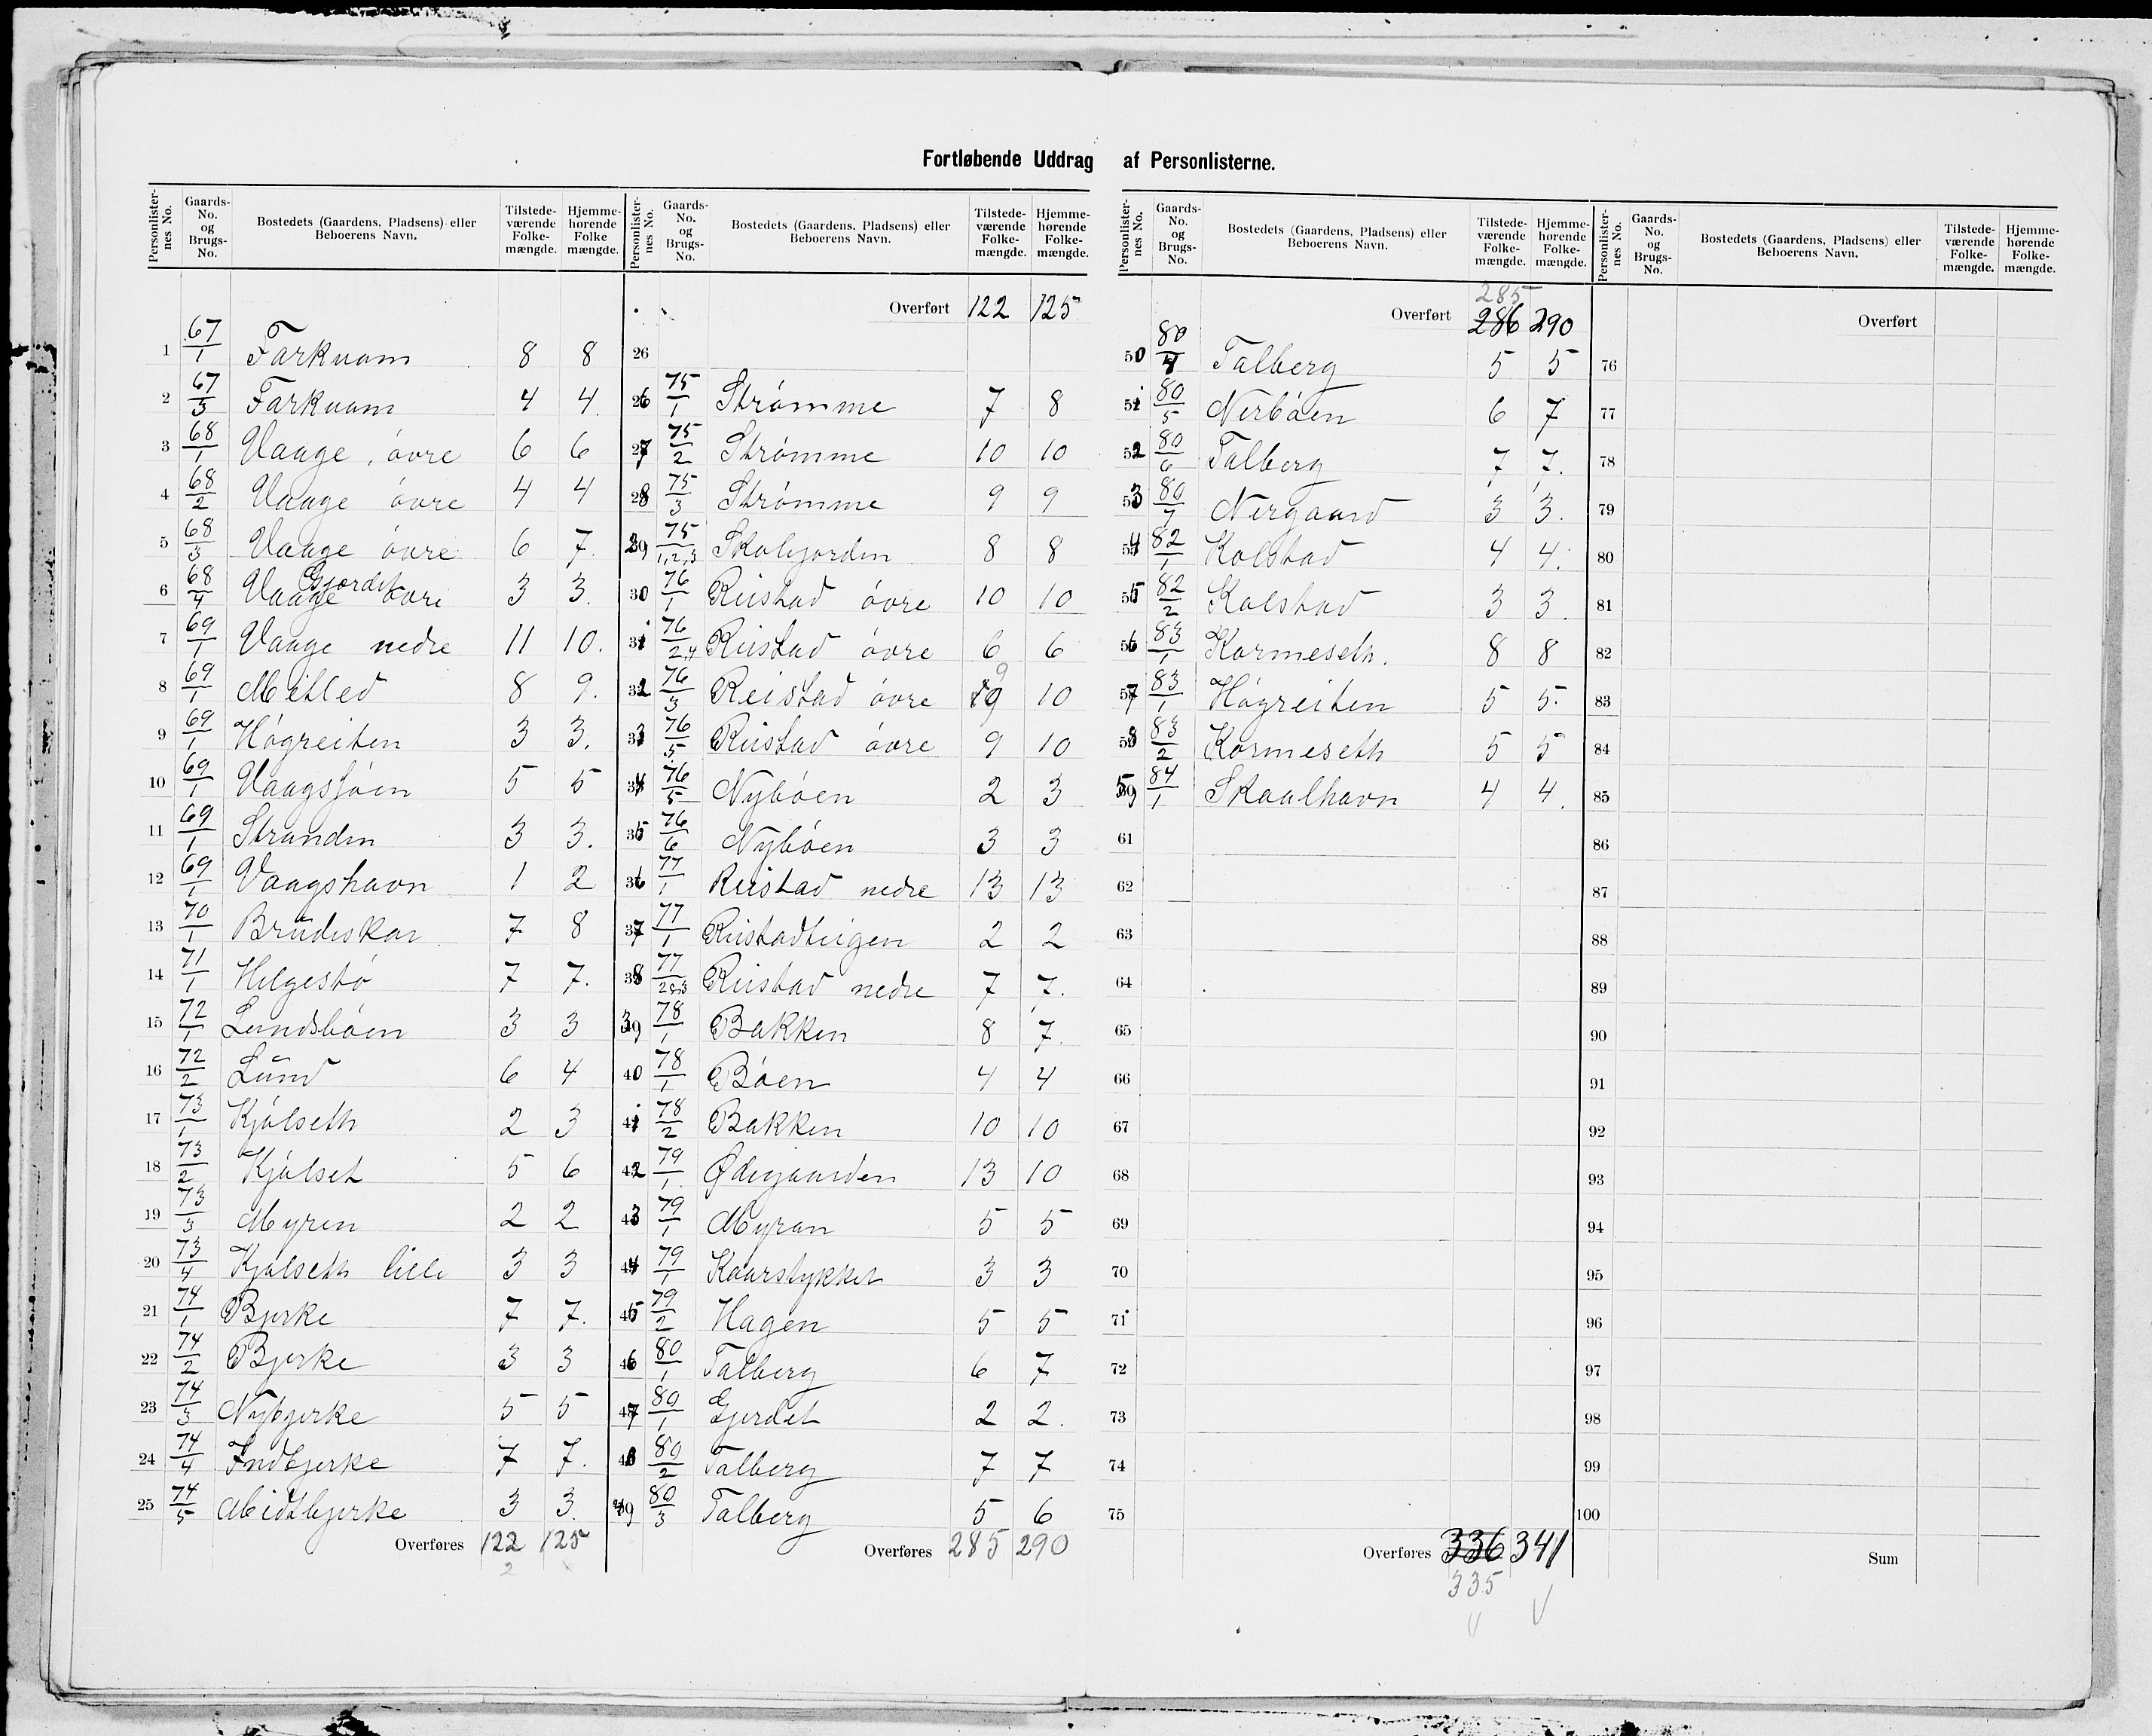 Fortløbende Uddrag af Personlisterne.
Personlisternes No. Gaards-No. og Brugs-No. Bostedets (Gaardens, Pladsens) eller Beboerens Navn. Tilstedeværende Folkemængde. Hjemmehørende Folkemængde.
1 67/1 Farkvam 8 8
2 67/3 Farkvam 4 4
3 68/1 Vaage, övre 6 6
4 68/2 Vaage övre 4 4
5 68/3 Vaage övre 6 7.
6 68/4 Vaage Gjordet övre 3 3.
7 69/1 Vaage nedre 11 10.
8 69/1 Mitled 8 9.
9 69/1 Högreiten 3 3.
10 69/1 Vaagsjöen 5 5
11 69/1 Stranden 3 3.
12 69/1 Vaagshavn 1 2
13 70/1 Brudeskar 7 8
14 71/1 Helgestö 7 7.
15 72/1 Lundsböen 3 3
16 72/2 Lund 6 4
17 73/1 Kjölseth 2 3
18 73/2 Kjölset 5 6
19 73/3 Myren 2 2
20 73/4 Kjölseth lille 3 3
21 74/1 Bjerke 7 7.
22 74/2 Bjerke 3 3
23 74/3 Nybjerke 5 5
24 74/4 Indbjerke 7 7.
25 74/5 Midtbjerke 3 3.
Overføres 122 125
Personlisternes No. Gaards-No. og Brugs-No. Bostedets (Gaardens, Pladsens) eller Beboerens Navn. Tilstedeværende Folkemængde. Hjemmehørende Folkemængde.
Overført 122 125
26
26 75/1 Strömme 7 8
27 75/2 Strömme 10 10
28 75/3 Strömme 9 9
29 75/1,2,3 Skolejorden 8 8
30 76/1 Reistad övre 10 10
31 76/2,4 Reistad övre 6 6
32 76/3 Reistad övre 9 10
33 76/5 Reistad övre 9 10
34 76/5 Nyböen 2 3
35 76/6 Nyböen 3 3
36 77/1 Reistad nedre 13 13
37 77/1 Reistadteigen 2 2
38 77/2&3 Reistad nedre 7 7.
39 78/1 Bakken 8 7.
40 78/1 Böen 4 4
41 78/2 Bakken 10 10
42 79/1 Ødegaarden 13 10
43 79/1 Myran 5 5
44 79/1 Kaarstykket 3 3
45 79/2 Hagen 5 5
46 80/1 Talberg 6 7
47 80/1 Gjerdet 2 2.
48 80/2 Talberg 7 7
49 80/3 Talberg 5 6
Overføres 285 290
Personlisternes No. Gaards-No. og Brugs-No. Bostedets (Gaardens, Pladsens) eller Beboerens Navn. Tilstedeværende Folkemængde. Hjemmehørende Folkemængde.
285
Overført 286 290
50 80/4 Talberg 5 5
51 80/5 Nerböen 6 7
52 80/6 Talberg 7 7.
53 80/7 Nergaard 3 3.
54 82/1 Kolstad 4 4.
55 82/2 Kolstad 3 3.
56 83/1 Kormeseth. 8 8
57 83/1 Högreiten 5 5.
58 83/2 Kormeseth 5 5
59 84/1 Skaalhavn 4 4.
61
62
63
64
65
66
67
68
69
70
71
72
73
74
75
Overføres 336 341
335
Personlisternes No. Gaards-No. og Brugs-No. Bostedets (Gaardens, Pladsens) eller Beboerens Navn. Tilstedeværende Folkemængde. Hjemmehørende Folkemængde.
Overført
76
77
78
79
80
81
82
83
84
85
86
87
88
89
90
91
92
93
94
95
96
97
98
99
100
Sum